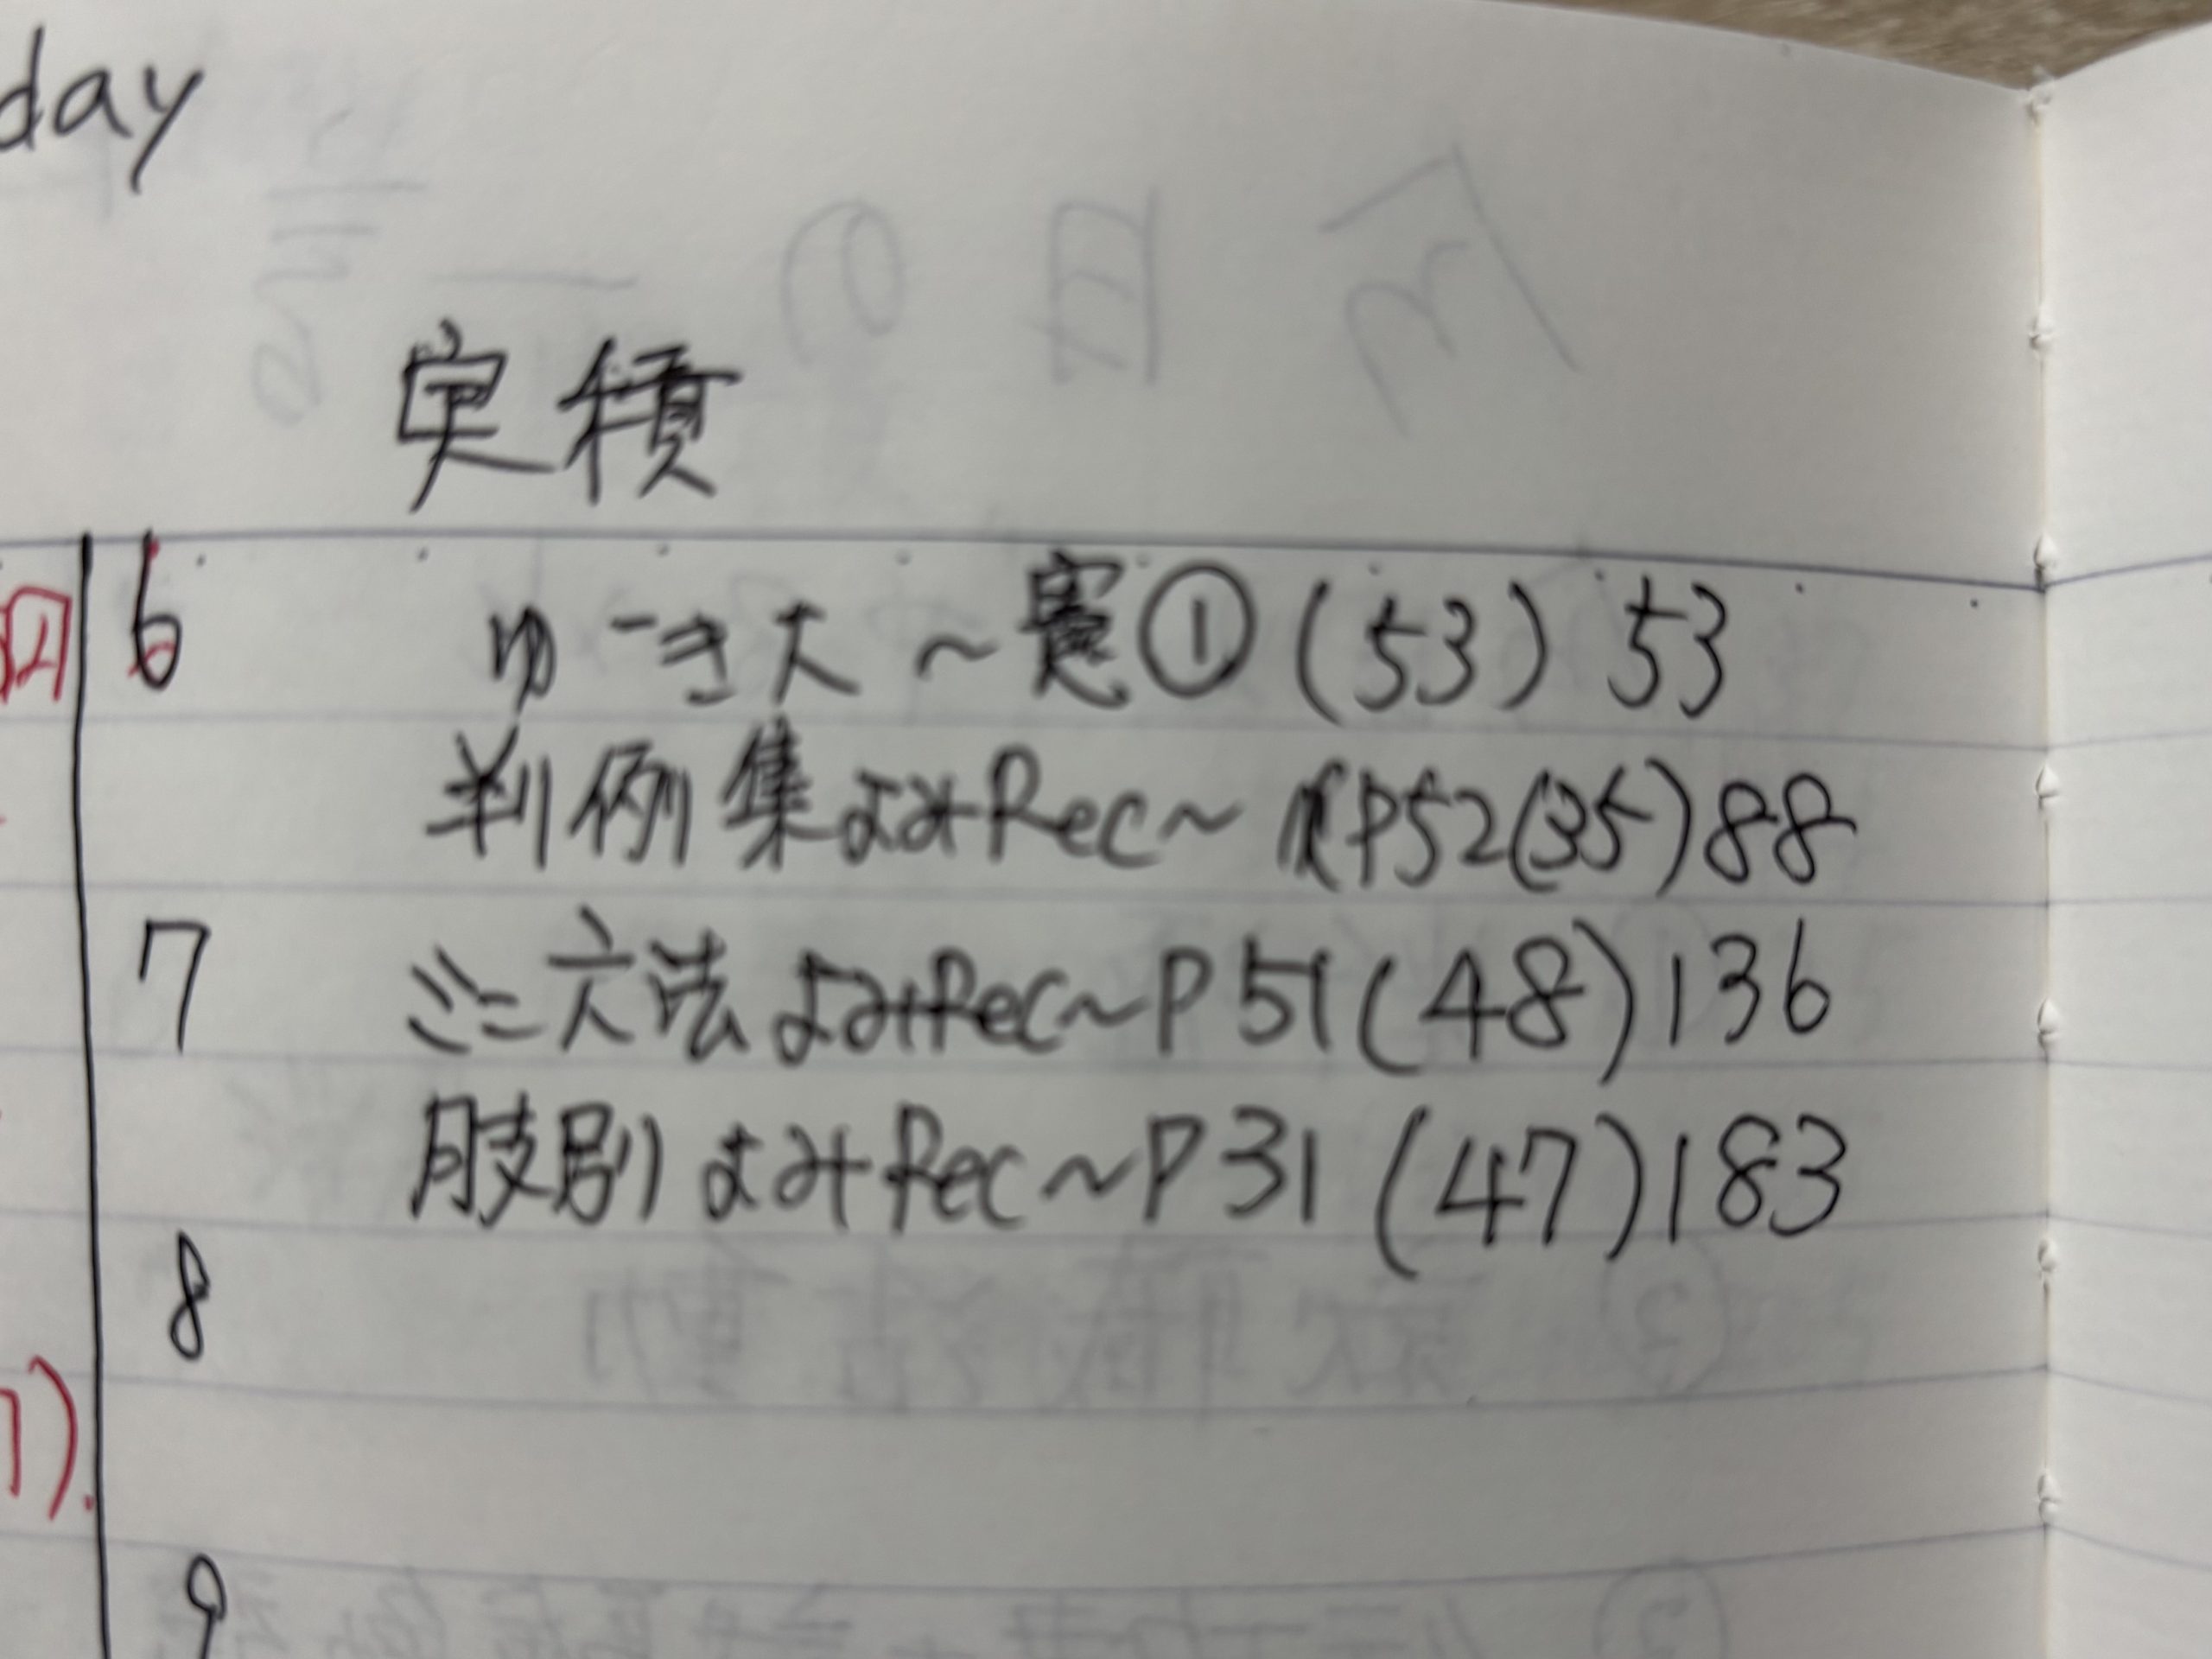 day
実積
6 ゆーき大~憲①(53) 53
判例集よみRec~P52(35)88
7 ミニ六法よみRec~P51(48)136
肢別よみRec~P31(47)183
8
9